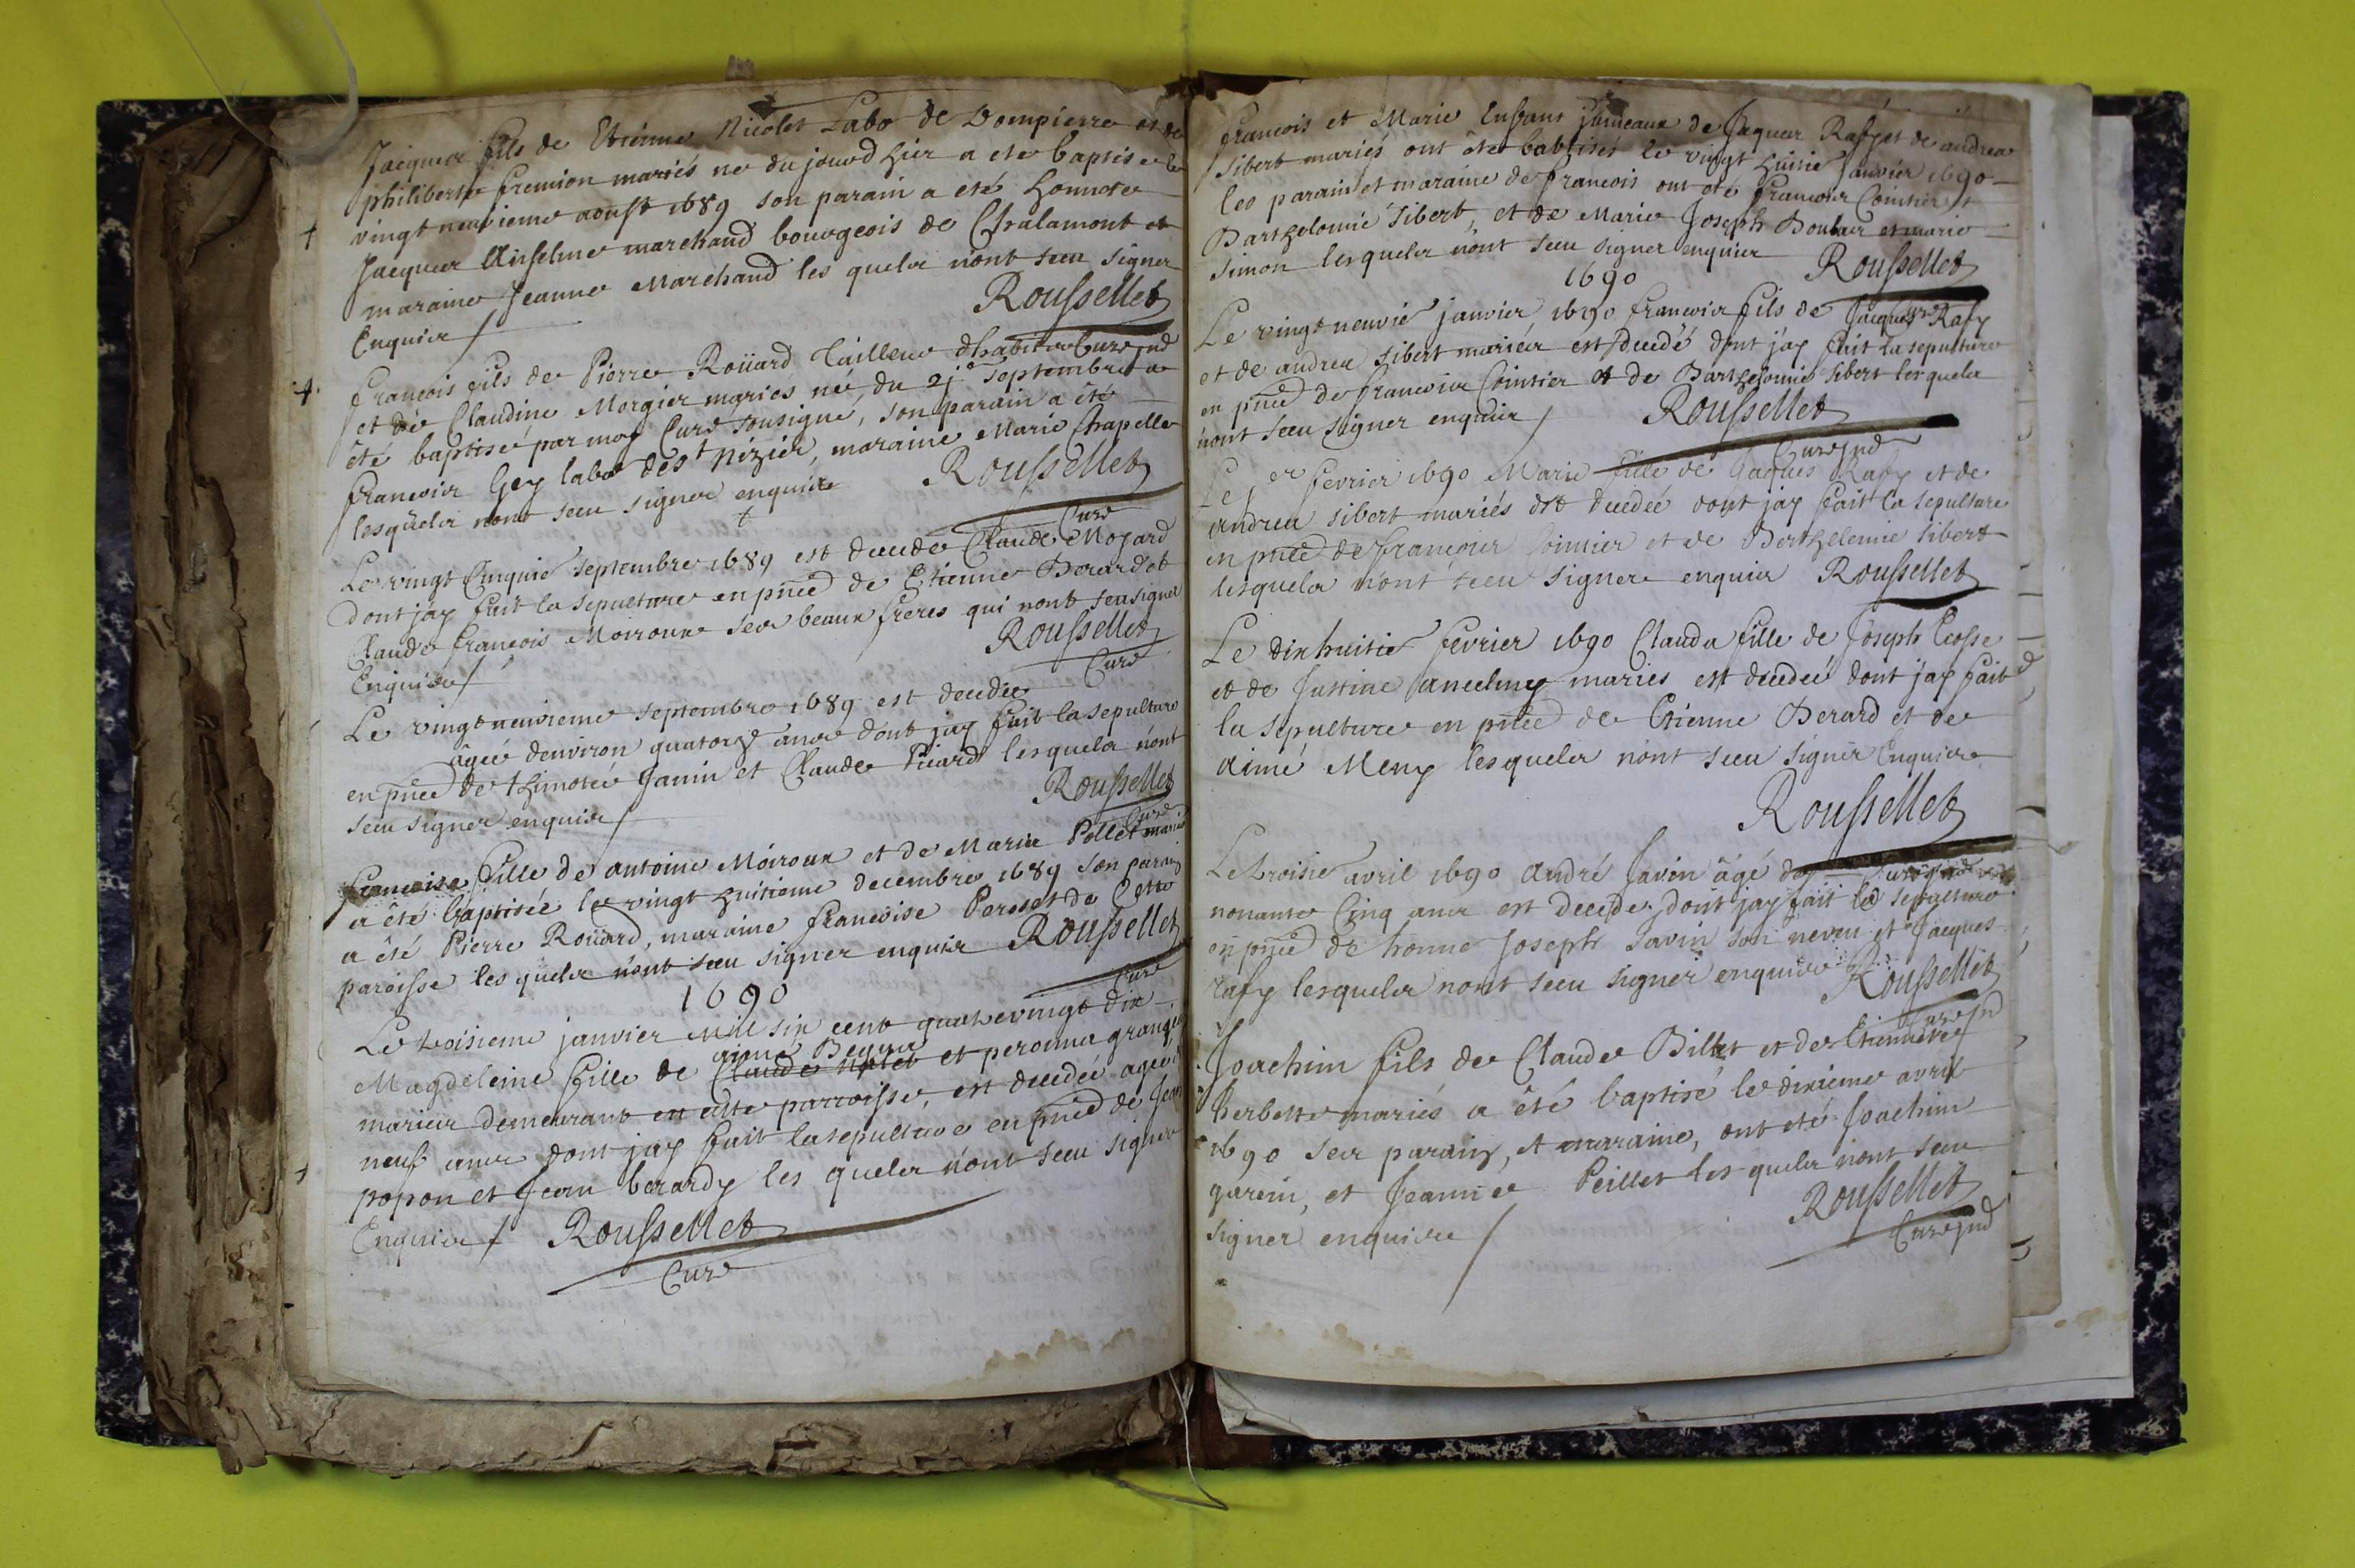 Jacques fils de Etienne Nicolet Labo de Dompierre et de
philiberte fremion mariés ne du jourd hier a ete baptise le
vingt neuvieme aoust 1689 son parain a eté honnete
Jacques Anselme marchand bourgeois de Chalamont et
maraine Jeanne Marchand les quels n'ont sceu signer
Enquis /
Roussellet
Curé jnd
françois fils de Pierre Roüard Tailleur d'habit
et de Claudine Morgier mariés né, du 2j.e Septembre a
été baptisé par moy Curé sousigné, son parain a été
francois Gey labo de st Nizier, maraine Marie Chapelle
lesquels n'ont sceu signer enquis
Roussellet
Curé
Le vingt Cinquie septembre 1689 est decedé Claude Mojard
dont jay fait la sepulture en pnce de Etienne Berard et
Claude francois Moiroux ses beaux freres qui n'ont sceu signer
Enquis /
Roussellet
Curé
Le vingt neuvieme septembre 1689 est decedée
âgée denviron quatorze ans dont jay fait la sepulture
en pnce de thimotée Janin et Claude Picard lesquels n'ont
sceu signer enquis /
Roussellet
Curé
francoise fille de antoine Moiroux et de Marie Pollet mariés
a été baptisée le vingt huitieme decembre 1689 son parain
a été Pierre Roüard, maraine francoise Perosset de Cette
paroisse les quels n'ont sceu signer enquis Roussellet
Curé
1690
Le troisieme janvier mil six cent quatrevingt dix
Magdeleine fille de aimé Beguet et peronne grangier
maries demeurant en cette parroisse, est decedée agée de
neuf ans dont jay fait la sepulture en pnce de Jean
popon et Jean berardy les quels n'ont sceu signer
Enquis / Roussellet
Curé
francois et Marie Enfans jumeaux de Jaques Rafy et de andrea
Sibert mariés ont été babtisés le vingt huitie Janvier 1690
les parain et maraine de francois ont eté francois Cointier et
Barthelomie Sibert, et de Marie Joseph Boulair et marie
Simon lesquels n'ont sceu signer enquis Roussellet
1690
Curé jnd
Le vingt neuvie janvier 1690 francois fils de Jacques Rafy
et de andrea Sibert mariés est decedé dont jay fait la sepulture
en pnce de francois Cointier et de Barthelomie Sibert lesquels
n'ont sceu signer enquis / Roussellet
Curé jnd
Le jer fevrier 1690 Marie fille de Jaques Rafy et de
andrea sibert mariés est decedée dont jay fait la sepulture
en pnce de francois Cointier et de Berthelemie Sibert
lesquels n'ont sceu signer enquis Roussellet
Le dix huitie fevrier 1690 Clauda fille de Joseph Cosse
et de Justine ancelmy mariés est decedée dont jay fait
la sepulture en pnce de Etienne Berard et de
aimé Meny lesquels n'ont sceu signer Enquis
Roussellet
Le troisie avril 1690 André Savin âgé de
nonante Cinq ans est decedé, dont jay fait la sepulture
en pnce de honne Joseph Savin son neveu et Jacques
rafy lesquels n'ont sceu signer enquis Roussellet
Curé jnd
Joachim fils de Claude Billet et de Etiennette
herbette mariés a été baptisé le dixieme avril
1690 ses parain, et maraine, ont eté Joachim
guerin, et Jeanne Peillet les quels n'ont sceu
signer enquis /
Roussellet
Curé jnd